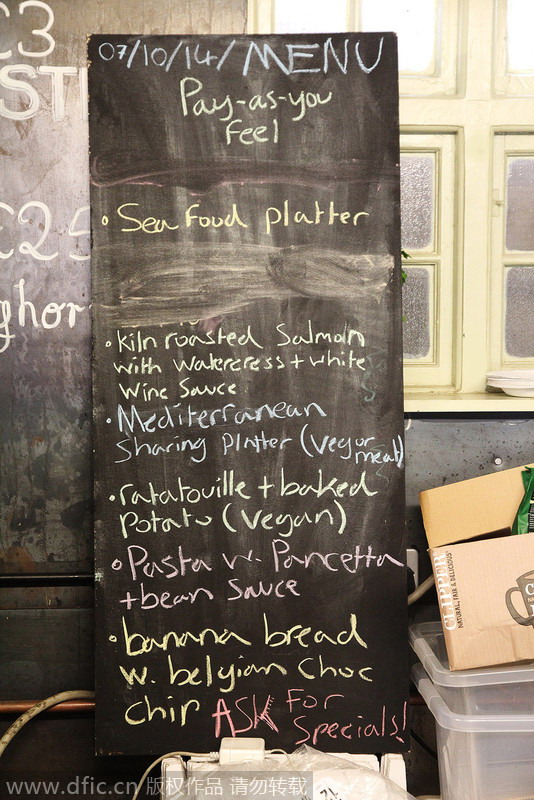 £3
ST
£25
ghor
07/10/14/MENU
Pay-as-you
Feel
• Sea food platter
• kiln roasted Salmon
with watercress + white
Wine Sauce
• Mediterranean
Sharing Platter (veg or
meat)
• ratatouille + baked
Potato (Vegan)
• Pasta w. Pancetta
+ bean Sauce
• banana bread
w. belgian Choc
Chip
ASK For
Specials!
CLIPPER
NATURAL, FAIR & DELICIOUS
www.dfic.cn 版权作品 请勿转载